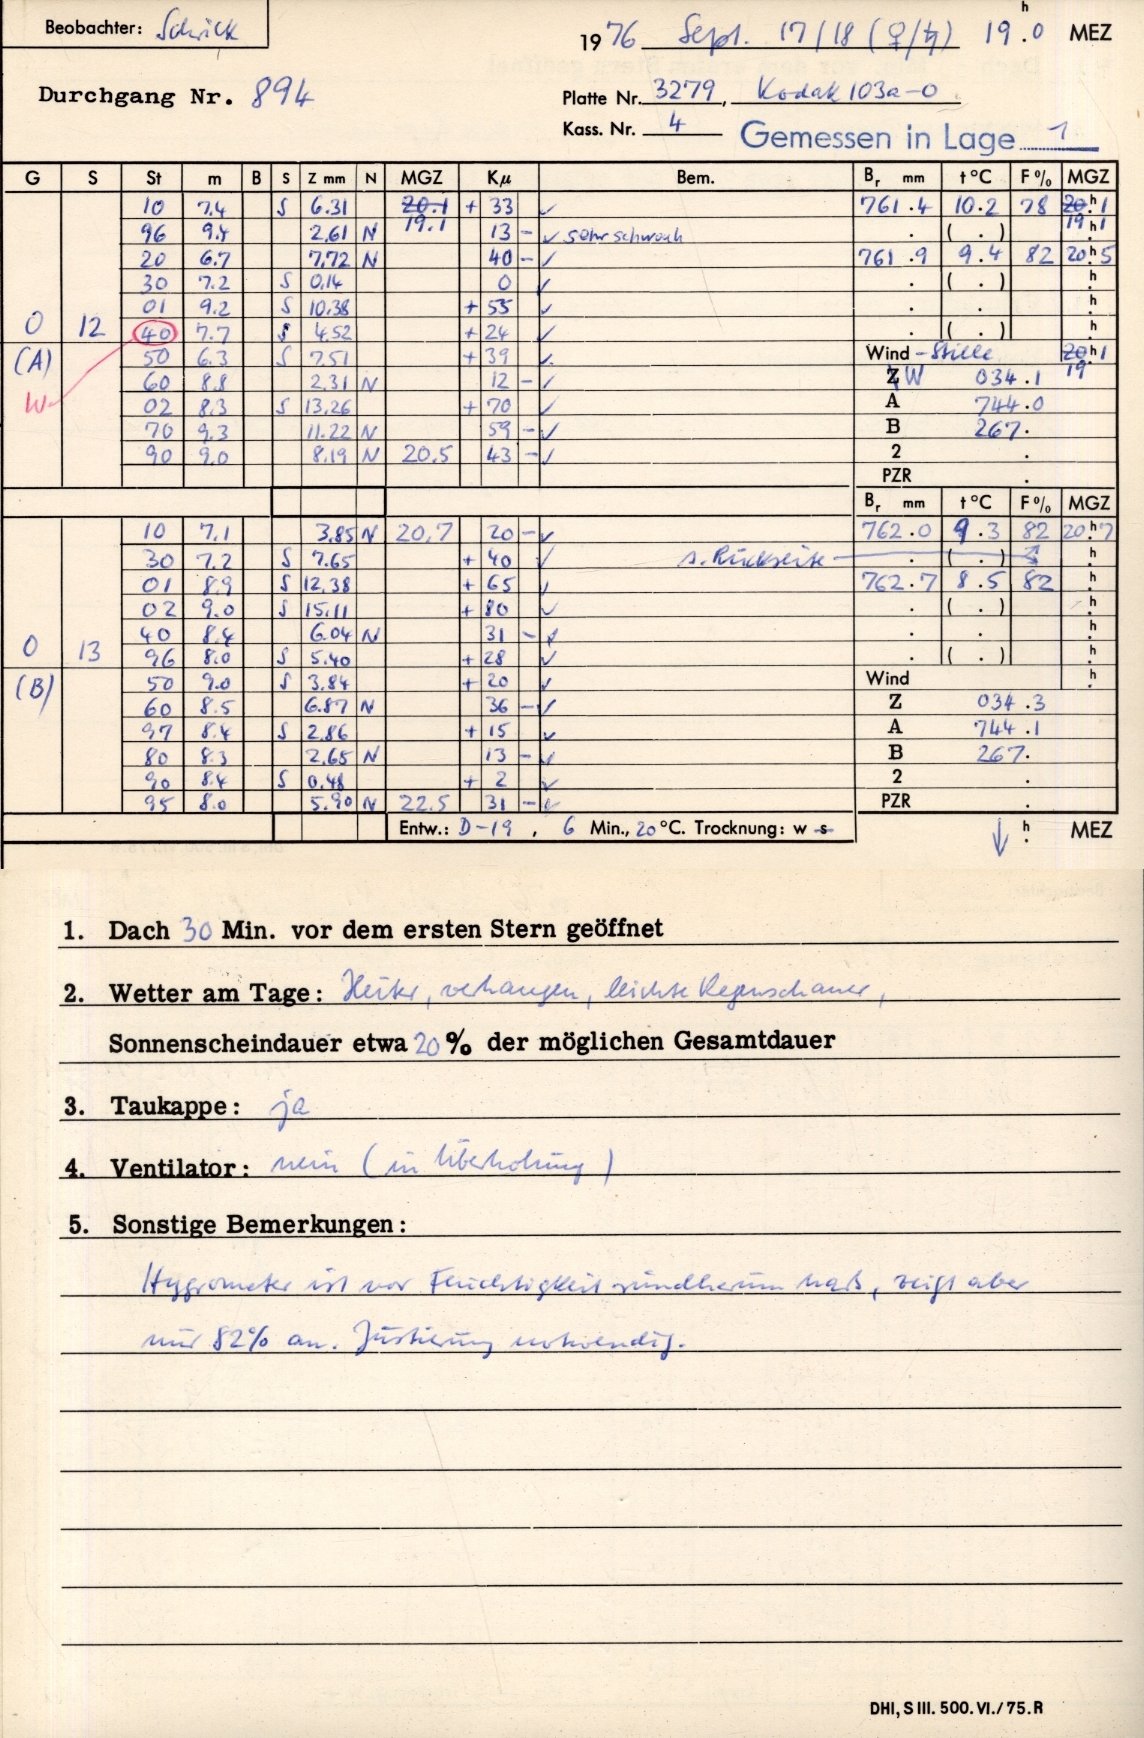 Beobachter: Schrick
1976 Sept. 17/18 (♀/♄) 19.h0 MEZ
Durchgang Nr. 894
Platte Nr. 3279, Kodak 103a-O
Kass. Nr. 4 Gemessen in Lage 1
G S St m B S Z mm N MGZ Kμ Bem. Br mm t°C F% MGZ
10 7.4 S 6.31 20.1 + 33 ✓ 761.4 10.2 78 20.h1
96 9.4 2.61 N 19.1 13 - ✓ sehr schwach . ( . ) 19.h1
20 6.7 7.72 N 40 - ✓ 761.9 9.4 82 20.h5
30 7.2 S 0.14 0 ✓ . ( . ) h
01 9.2 S 10.38 + 55 ✓ . . h
0 12 40 7.7 S 4.52 + 24 ✓ . ( . ) h
(A) 50 6.3 S 7.51 + 39 ✓ Wind - Stille 20.h1
W 60 8.8 2.31 N 12 - ✓ Z W 034.1 19
02 8.3 S 13.26 + 70 ✓ A 744.0
70 9.3 11.22 N 59 - ✓ B 267.
90 9.0 8.19 N 20.5 43 - ✓ 2 .
PZR .
Br mm t°C F% MGZ
10 7.1 3.85 N 20.7 20 - ✓ 762.0 9.3 82 20.h7
30 7.2 S 7.65 + 40 ✓ s. Rückseite . ( . ) h
01 8.9 S 12.38 + 65 ✓ 762.7 8.5 82 h
02 9.0 S 15.11 + 80 ✓ . ( . ) h
40 8.4 6.04 N 31 - ✓ . . h
0 13 96 8.0 S 5.40 + 28 ✓ . ( . ) h
(B) 50 9.0 S 3.84 + 20 ✓ Wind h
60 8.5 6.87 N 36 - ✓ Z 034.3
97 8.4 S 2.86 + 15 ✓ A 744.1
80 8.3 2.65 N 13 - ✓ B 267.
90 8.4 S 0.48 + 2 ✓ 2 .
95 8.0 5.90 N 22.5 31 - ✓ PZR .
Entw.: D-19, 6 Min., 20 °C. Trocknung: w s ↓ h MEZ
1. Dach 30 Min. vor dem ersten Stern geöffnet
2. Wetter am Tage: Heiter, verhangen, leichte Regenschauer,
Sonnenscheindauer etwa 20% der möglichen Gesamtdauer
3. Taukappe: ja
4. Ventilator: nein (in Überholung)
5. Sonstige Bemerkungen:
Hygrometer ist vor Feuchtigkeit rundherum naß, zeigt aber
nur 82% an. Justierung notwendig.
DHI, S III. 500. VI./75. R